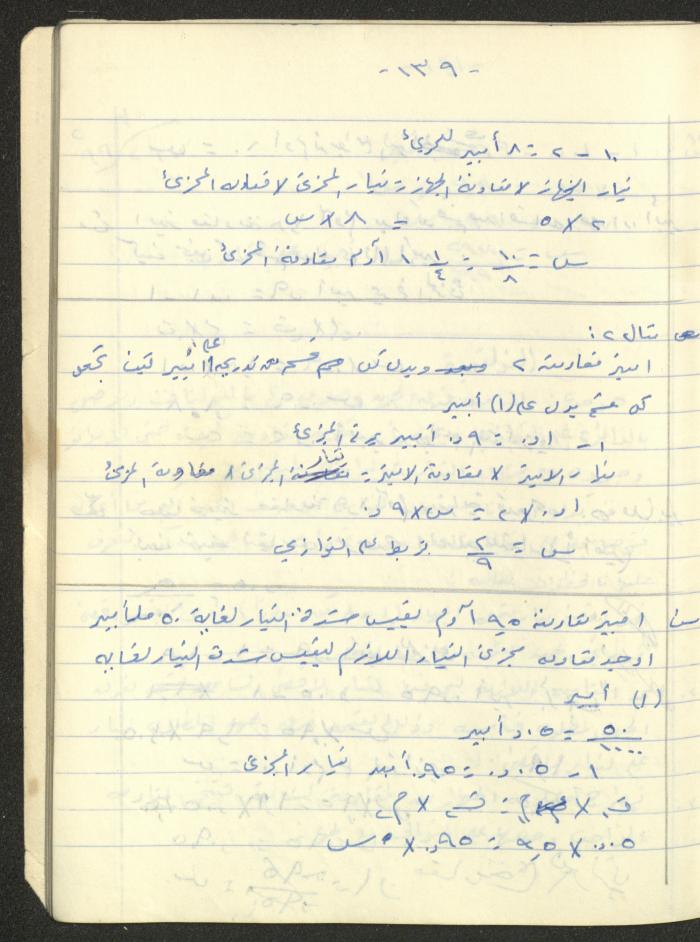 -١٣٩-
١٠ - ٢ = ٨ أمبير للمجزئ
تيار الجهاز × مقاومة الجهاز = تيار المجزئ × مقاومة المجزئ
٢ × ٥ = ٨ × س
س = ١٠/٨ = ١ ١/٤ أوم مقاومة المجزئ
مثال ٢ :
امبير مقاومته ٢ ويدل كل قسم من تدريجه على ١ر أمبير كيف نجعل
كل قسم يدل على (١) أمبير
١ - ١ر٠ = ٩ر٠ أمبير يمر في المجزئ
تيار الامبير × مقاومة الامبير = تيار المجزئ × مقاومة المجزئ
١ر٠ × ٢ = س × ٩ر٠
س = ٢/٩ يربط على التوازي
س/ امبير مقاومته ٥ر٩ أوم يقيس شدة التيار لغاية ٥٠ ملمأمبير
اوجد مقاومه مجزئ التيار اللازم ليقيس شدة التيار لغاية
(١) أمبير
٥٠/١٠٠٠ = ٠٥ر أمبير
١ - ٠٥ر٠ = ٩٥ر٠ أمبير تيار المجزئ
٠٥ر٠ × ٥ر٩ = ٩٥ر٠ × س